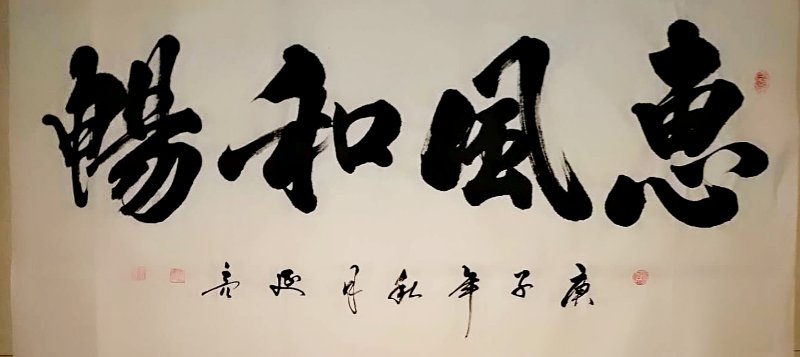 惠風和暢
庚子年秋月延亮